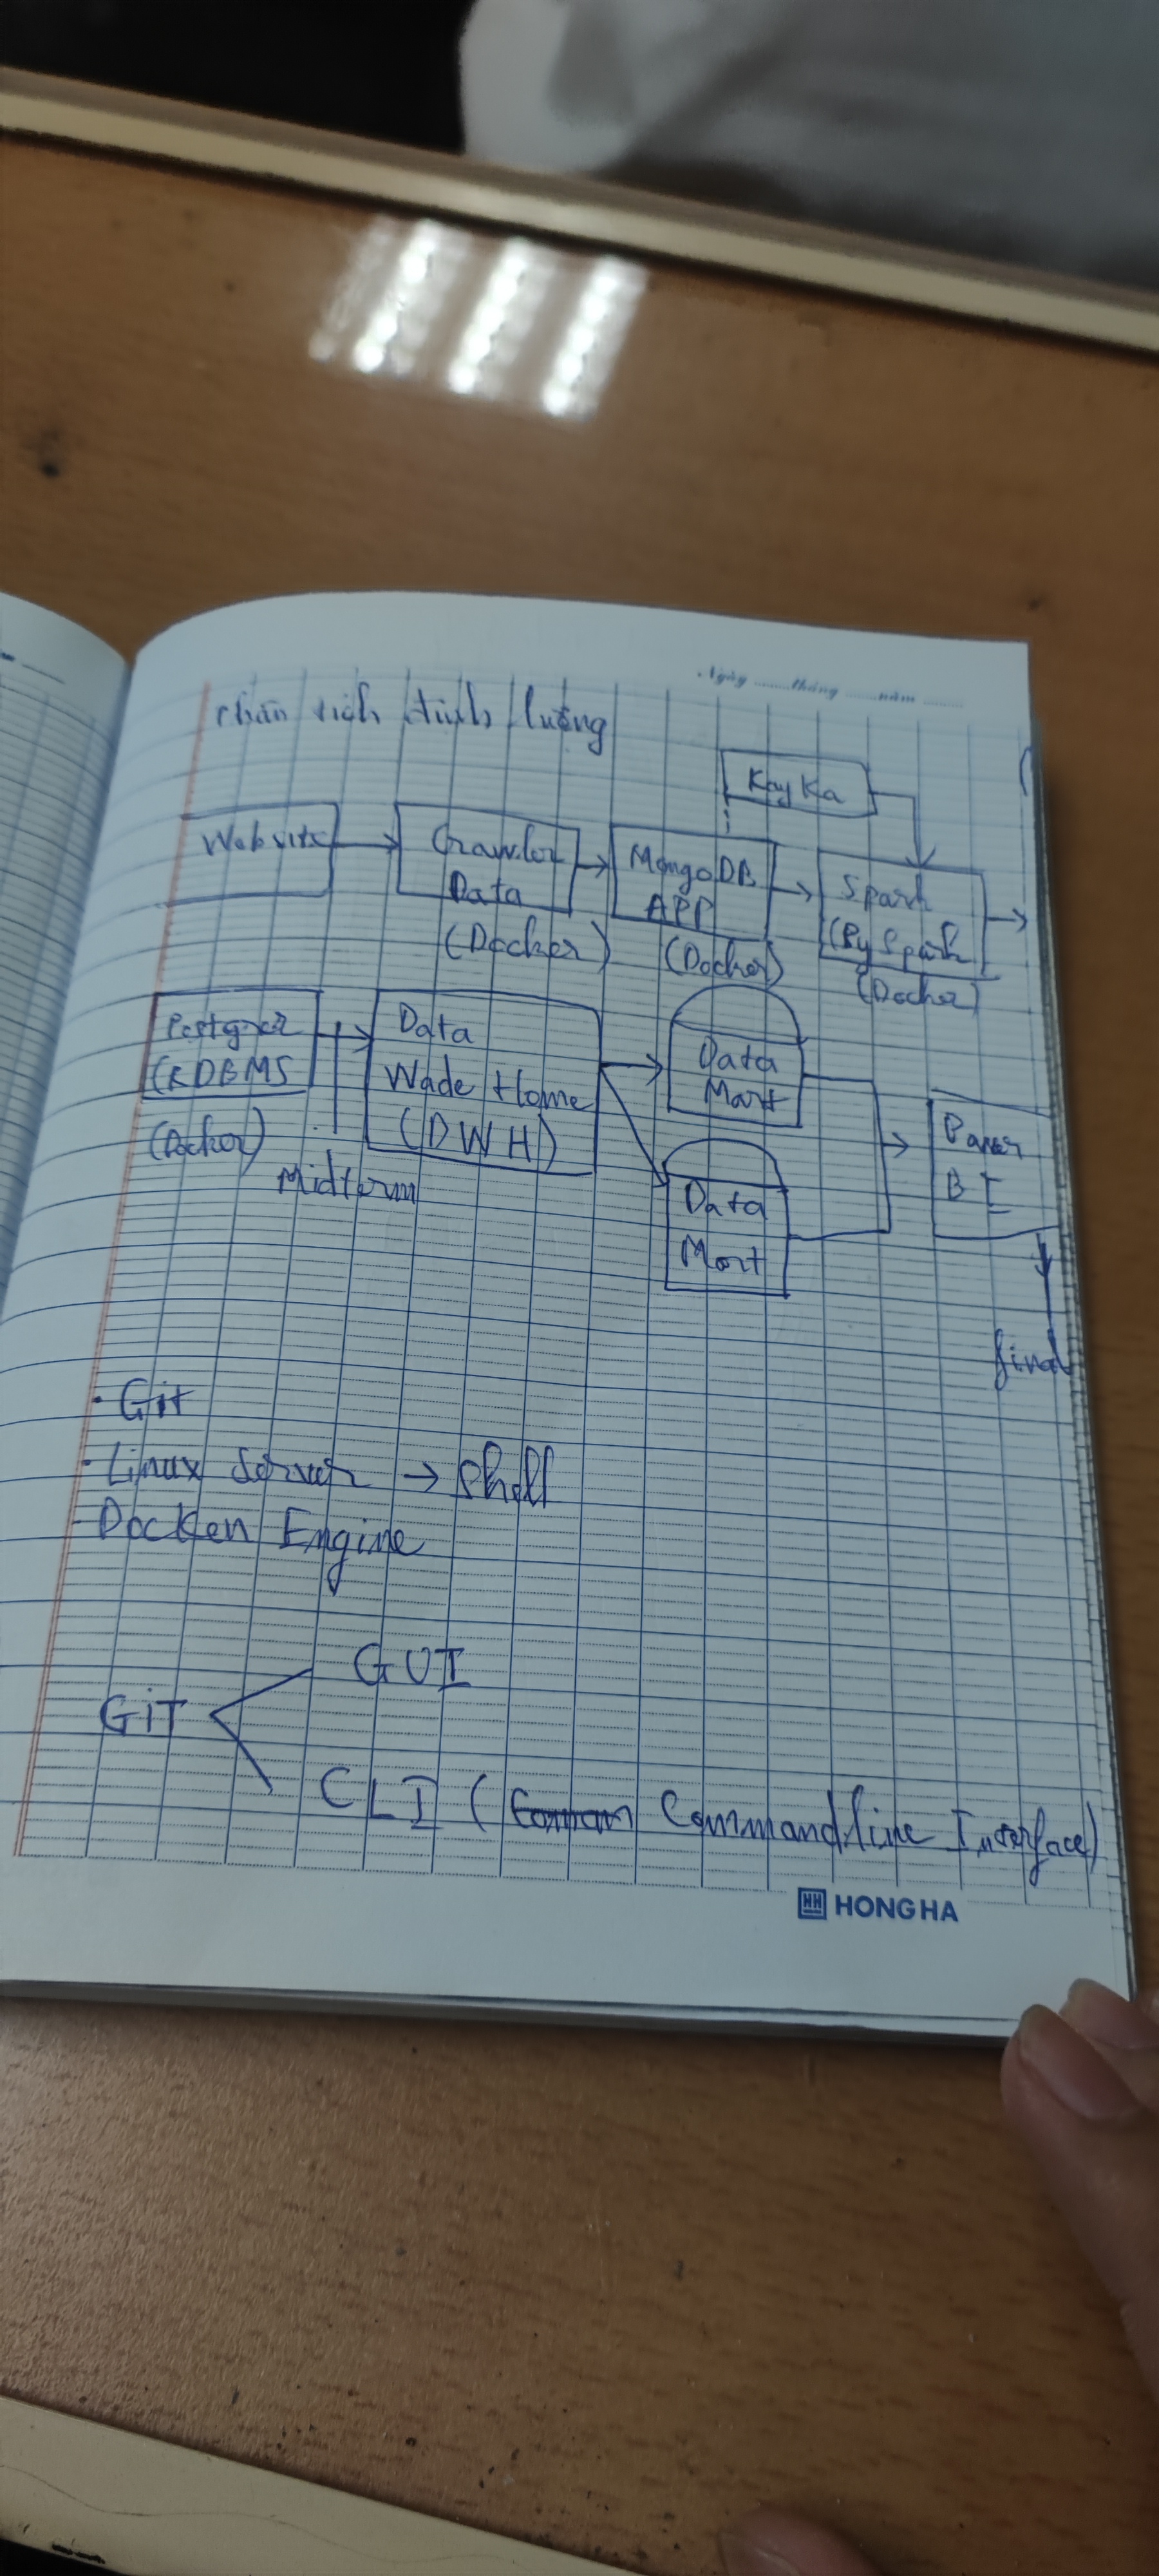 Ngày ........tháng ........năm ..........
Phân tích định lượng
Kay Ka
Website
Crawler
Data
(Docker)
MongoDB
APP
(Docker)
Spark
(PySpark
(Docker)
Postgres
(RDBMS
(Docker)
Data
Wade Home
(DWH)
Midterm
Data
Mart
Data
Mart
Power
BI
final
• Git
• Linux Server → Shell
- Docker Engine
GIT
GUI
CLI ( Commandline Interface)
HONG HA